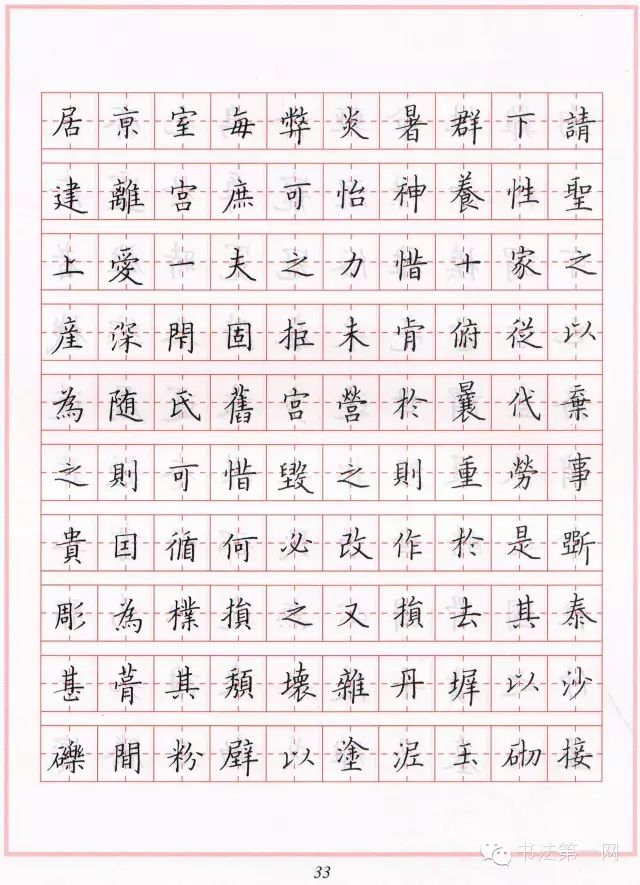 居京室每弊炎暑群下請
建離宮庶可怡神養性聖
上愛一夫之力惜十家之
産深閇固拒未肯俯從以
為随氏舊宮營於曩代棄
之則可惜毀之則重勞事
貴因循何必改作於是斵
彫為樸損之又損去其泰
甚葺其頹壞雜丹墀以沙
礫間粉壁以塗泥玉砌接
33
书法第一网